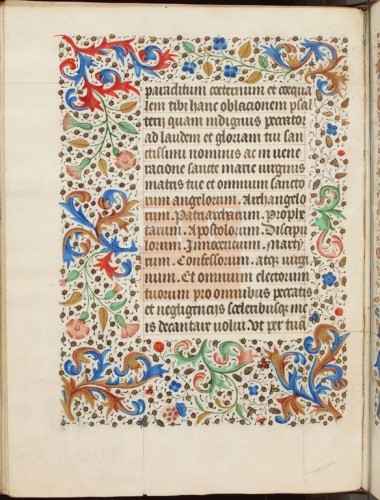 paraclitum coeternum et coequa
lem tibi hanc oblacionem psal
terii quam indignus peccator
ad laudem et gloriam tui san
ctissimi nominis ac in vene
racione sancte marie virginis
matris tue et omnium sancto
rum angelorum. Archangelo
rum. Patriarcharum. Prophe
tarum. Apostolorum. Discipu
lorum. Innocencium. Marty
rum. Confessorum. atq; virgi
num. Et omnium electorum
tuorum pro omnibus peccatis
et negligenciis sceleribusque me
is decantare volui. Vt per tua